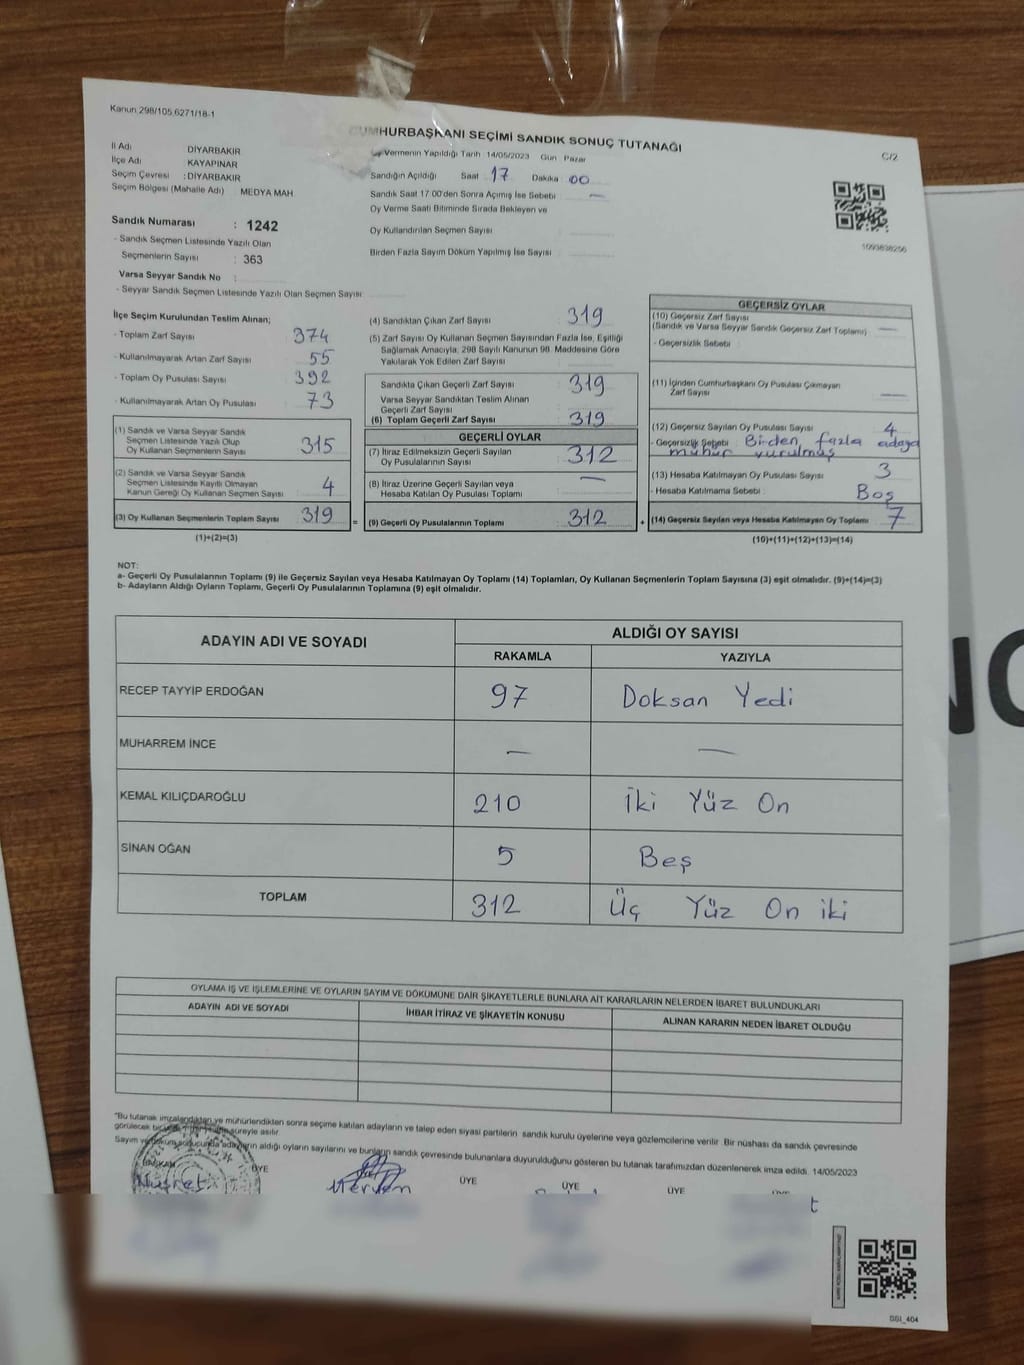 Kanun 298/105,6271/18-1
CUMHURBAŞKANI SEÇİMİ SANDIK SONUÇ TUTANAĞI
C/2
İl Adı DİYARBAKIR
İlçe Adı KAYAPINAR
Seçim Çevresi : DİYARBAKIR
Seçim Bölgesi (Mahalle Adı) : MEDYA MAH.
Oy Vermenin Yapıldığı Tarih 14/05/2023 Gün Pazar
Sandığın Açıldığı Saat 17 Dakika 00
Sandık Saat 17:00'den Sonra Açımış İse Sebebi : —
Oy Verme Saati Bitiminde Sırada Bekleyen ve
Oy Kullandırılan Seçmen Sayısı
Birden Fazla Sayım Döküm Yapılmış İse Sayısı :
1093838256
Sandık Numarası : 1242
- Sandık Seçmen Listesinde Yazılı Olan
Seçmenlerin Sayısı : 363
Varsa Seyyar Sandık No :
- Seyyar Sandık Seçmen Listesinde Yazılı Olan Seçmen Sayısı:
İlçe Seçim Kurulundan Teslim Alınan;
- Toplam Zarf Sayısı 374
- Kullanılmayarak Artan Zarf Sayısı 55
- Toplam Oy Pusulası Sayısı 392
- Kullanılmayarak Artan Oy Pusulası 73
(1) Sandık ve Varsa Seyyar Sandık
Seçmen Listesinde Yazılı Olup
Oy Kullanan Seçmenlerin Sayısı 315
(2) Sandık ve Varsa Seyyar Sandık
Seçmen Listesinde Kayıtlı Olmayan
Kanun Gereği Oy Kullanan Seçmen Sayısı 4
(3) Oy Kullanan Seçmenlerin Toplam Sayısı 319
=
(1)+(2)=(3)
(4) Sandıktan Çıkan Zarf Sayısı 319
(5) Zarf Sayısı Oy Kullanan Seçmen Sayısından Fazla İse, Eşitliği
Sağlamak Amacıyla; 298 Sayılı Kanunun 98. Maddesine Göre
Yakılarak Yok Edilen Zarf Sayısı
Sandıkta Çıkan Geçerli Zarf Sayısı 319
Varsa Seyyar Sandıktan Teslim Alınan
Geçerli Zarf Sayısı
(6) Toplam Geçerli Zarf Sayısı 319
GEÇERLİ OYLAR
(7) İtiraz Edilmeksizin Geçerli Sayılan
Oy Pusulalarının Sayısı 312
(8) İtiraz Üzerine Geçerli Sayılan veya
Hesaba Katılan Oy Pusulası Toplamı —
(9) Geçerli Oy Pusulalarının Toplamı 312
+
GEÇERSİZ OYLAR
(10) Geçersiz Zarf Sayısı
(Sandık ve Varsa Seyyar Sandık Geçersiz Zarf Toplamı) —
- Geçersizlik Sebebi :
(11) İçinden Cumhurbaşkanı Oy Pusulası Çıkmayan
Zarf Sayısı —
(12) Geçersiz Sayılan Oy Pusulası Sayısı 4
- Geçersizlik Sebebi : Birden fazla adaya
mühür vurulmuş
(13) Hesaba Katılmayan Oy Pusulası Sayısı 3
- Hesaba Katılmama Sebebi : Boş
(14) Geçersiz Sayılan veya Hesaba Katılmayan Oy Toplamı 7
(10)+(11)+(12)+(13)=(14)
NOT:
a- Geçerli Oy Pusulalarının Toplamı (9) ile Geçersiz Sayılan veya Hesaba Katılmayan Oy Toplamı (14) Toplamları, Oy Kullanan Seçmenlerin Toplam Sayısına (3) eşit olmalıdır. (9)+(14)=(3)
b- Adayların Aldığı Oyların Toplamı, Geçerli Oy Pusulalarının Toplamına (9) eşit olmalıdır.
ADAYIN ADI VE SOYADI
ALDIĞI OY SAYISI
RAKAMLA YAZIYLA
RECEP TAYYİP ERDOĞAN 97 Doksan Yedi
MUHARREM İNCE — —
KEMAL KILIÇDAROĞLU 210 İki Yüz On
SİNAN OĞAN 5 Beş
TOPLAM 312 Üç Yüz On iki
OYLAMA İŞ VE İŞLEMLERİNE VE OYLARIN SAYIM VE DÖKÜMÜNE DAİR ŞİKAYETLERLE BUNLARA AİT KARARLARIN NELERDEN İBARET BULUNDUKLARI
ADAYIN ADI VE SOYADI İHBAR İTİRAZ VE ŞİKAYETİN KONUSU ALINAN KARARIN NEDEN İBARET OLDUĞU
"Bu tutanak imzalandıktan ve mühürlendikten sonra seçime katılan adayların ve talep eden siyasi partilerin sandık kurulu üyelerine veya gözlemcilerine verilir. Bir nüshası da sandık çevresinde
görülecek bir süreyle asılır.
Sayım ve döküm sonucunda adayların aldığı oyların sayılarını ve bunların sandık çevresinde bulunanlara duyurulduğunu gösteren bu tutanak tarafımızdan düzenlenerek imza edildi. 14/05/2023
BAŞKAN ÜYE ÜYE ÜYE ÜYE
Nusret Merven
SSI_404